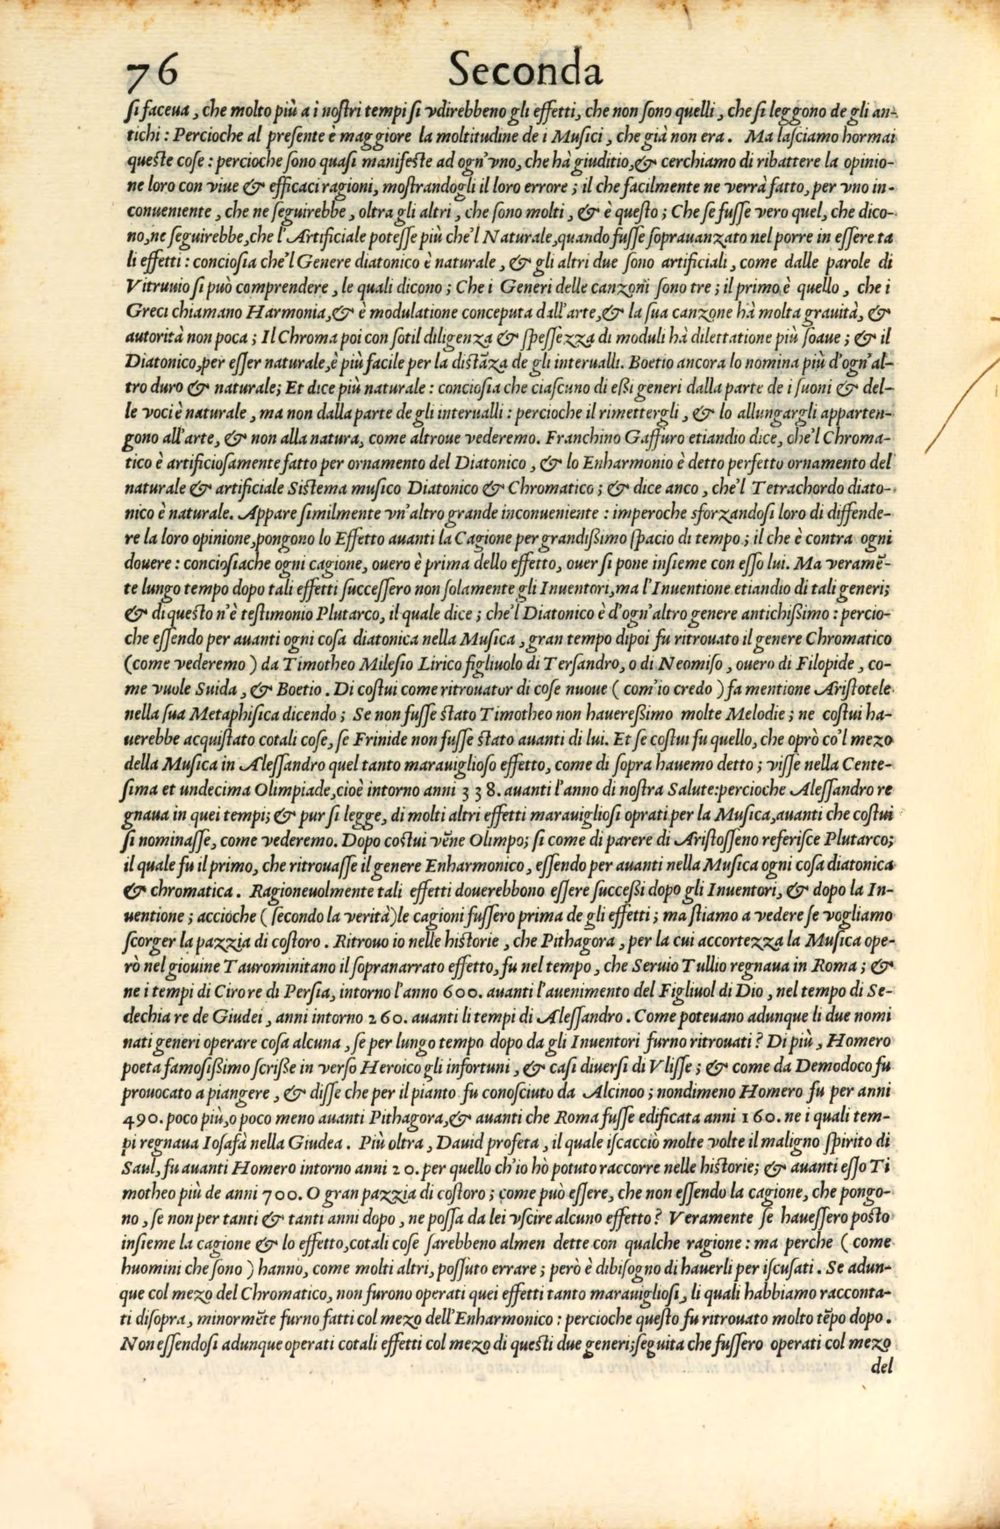 76 Seconda
si faceua, che molto più a i nostri tempi si vdirebbeno gli effetti, che non sono quelli, che si leggono de gli an-
tichi: Percioche al presente è maggiore la moltitudine de i Musici, che già non era. Ma lasciamo hormai
queste cose: percioche sono quasi manifeste ad ogn'vno, che hà giuditio, & cerchiamo di ribattere la opinio-
ne loro con viue & efficaci ragioni, mostrandogli il loro errore; il che facilmente ne verrà fatto, per vno in-
conueniente, che ne seguirebbe, oltra gli altri, che sono molti, & è questo; Che se fusse vero quel, che dico-
no, ne seguirebbe, che l'Artificiale potesse più che'l Naturale, quando fusse soprauanzato nel porre in essere ta
li effetti: conciosia che'l Genere diatonico è naturale, & gli altri due sono artificiali, come dalle parole di
Vitruuio si può comprendere, le quali dicono; Che i Generi delle canzoni sono tre; il primo è quello, che i
Greci chiamano Harmonia, & è modulatione conceputa dall'arte, & la sua canzone hà molta grauità, &
autorità non poca; Il Chroma poi con sotil diligenza & spessezza di moduli hà dilettatione più soaue; & il
Diatonico, per esser naturale, è più facile per la distāza de gli interualli. Boetio ancora lo nomina più d'ogn'al-
tro duro & naturale; Et dice più naturale: conciosia che ciascuno di essi generi dalla parte de i suoni & del-
le voci è naturale, ma non dalla parte de gli interualli: percioche il rimettergli, & lo allungargli apparten-
gono all'arte, & non alla natura, come altroue vederemo. Franchino Gaffuro etiandio dice, che'l Chroma-
tico è artificiosamente fatto per ornamento del Diatonico, & lo Enharmonio è detto perfetto ornamento del
naturale & artificiale Sistema musico Diatonico & Chromatico; & dice anco, che'l Tetrachordo diato-
nico è naturale. Appare similmente vn'altro grande inconueniente: imperoche sforzandosi loro di diffende-
re la loro opinione, pongono lo Effetto auanti la Cagione per grandissimo spacio di tempo; il che è contra ogni
douere: conciosiache ogni cagione, ouero è prima dello effetto, ouer si pone insieme con esso lui. Ma veramē-
te lungo tempo dopo tali effetti successero non solamente gli Inuentori, ma l'Inuentione etiandio di tali generi;
& di questo n'è testimonio Plutarco, il quale dice; che'l Diatonico è d'ogn'altro genere antichissimo: percio-
che essendo per auanti ogni cosa diatonica nella Musica, gran tempo dipoi fu ritrouato il genere Chromatico
(come vederemo) da Timotheo Milesio Lirico figliuolo di Tersandro, o di Neomiso, ouero di Filopide, co-
me vuole Suida, & Boetio. Di costui come ritrouatur di cose nuoue (com'io credo) fa mentione Aristotele
nella sua Metaphisica dicendo; Se non fusse stato Timotheo non haueressimo molte Melodie; ne costui ha-
uerebbe acquistato cotali cose, se Frinide non fusse stato auanti di lui. Et se costui fu quello, che oprò co'l mezo
della Musica in Alessandro quel tanto marauiglioso effetto, come di sopra hauemo detto; visse nella Cente-
sima et undecima Olimpiade, cioè intorno anni 338. auanti l'anno di nostra Salute: percioche Alessandro re
gnaua in quei tempi; & pur si legge, di molti altri effetti marauigliosi oprati per la Musica, auanti che costui
si nominasse, come vederemo. Dopo costui vēne Olimpo; si come di parere di Aristosseno referisce Plutarco;
il quale fu il primo, che ritrouasse il genere Enharmonico, essendo per auanti nella Musica ogni cosa diatonica
& chromatica. Ragioneuolmente tali effetti douerebbono essere successi dopo gli Inuentori, & dopo la In-
uentione; accioche (secondo la verità) le cagioni fussero prima de gli effetti; ma stiamo a vedere se vogliamo
scorger la pazzia di costoro. Ritrouo io nelle historie, che Pithagora, per la cui accortezza la Musica ope-
rò nel giouine Taurominitano il sopranarrato effetto, fu nel tempo, che Seruio Tullio regnaua in Roma; &
ne i tempi di Ciro re di Persia, intorno l'anno 600. auanti l'auenimento del Figliuol di Dio, nel tempo di Se-
dechia re de Giudei, anni intorno 260. auanti li tempi di Alessandro. Come poteuano adunque li due nomi
nati generi operare cosa alcuna, se per lungo tempo dopo da gli Inuentori furno ritrouati? Di più, Homero
poeta famosissimo scrisse in verso Heroico gli infortuni, & casi diuersi di Vlisse; & come da Demodoco fu
prouocato a piangere, & disse che per il pianto fu conosciuto da Alcinoo; nondimeno Homero fu per anni
490. poco più, o poco meno auanti Pithagora, & auanti che Roma fusse edificata anni 160. ne i quali tem-
pi regnaua Iosafà nella Giudea. Più oltra, Dauid profeta, il quale iscacciò molte volte il maligno spirito di
Saul, fu auanti Homero intorno anni 20. per quello ch'io hò potuto raccorre nelle historie; & auanti esso Ti
motheo più de anni 700. O gran pazzia di costoro; come può essere, che non essendo la cagione, che pongo-
no, se non per tanti & tanti anni dopo, ne possa da lei vscire alcuno effetto? Veramente se hauessero posto
insieme la cagione & lo effetto, cotali cose sarebbeno almen dette con qualche ragione: ma perche (come
huomini che sono) hanno, come molti altri, possuto errare; però è dibisogno di hauerli per iscusati. Se adun-
que col mezo del Chromatico, non furono operati quei effetti tanto marauigliosi, li quali habbiamo racconta-
ti disopra, minormēte furno fatti col mezo dell'Enharmonico: percioche questo fu ritrouato molto tēpo dopo.
Non essendosi adunque operati cotali effetti col mezo di questi due generi; seguita che fussero operati col mezo
del